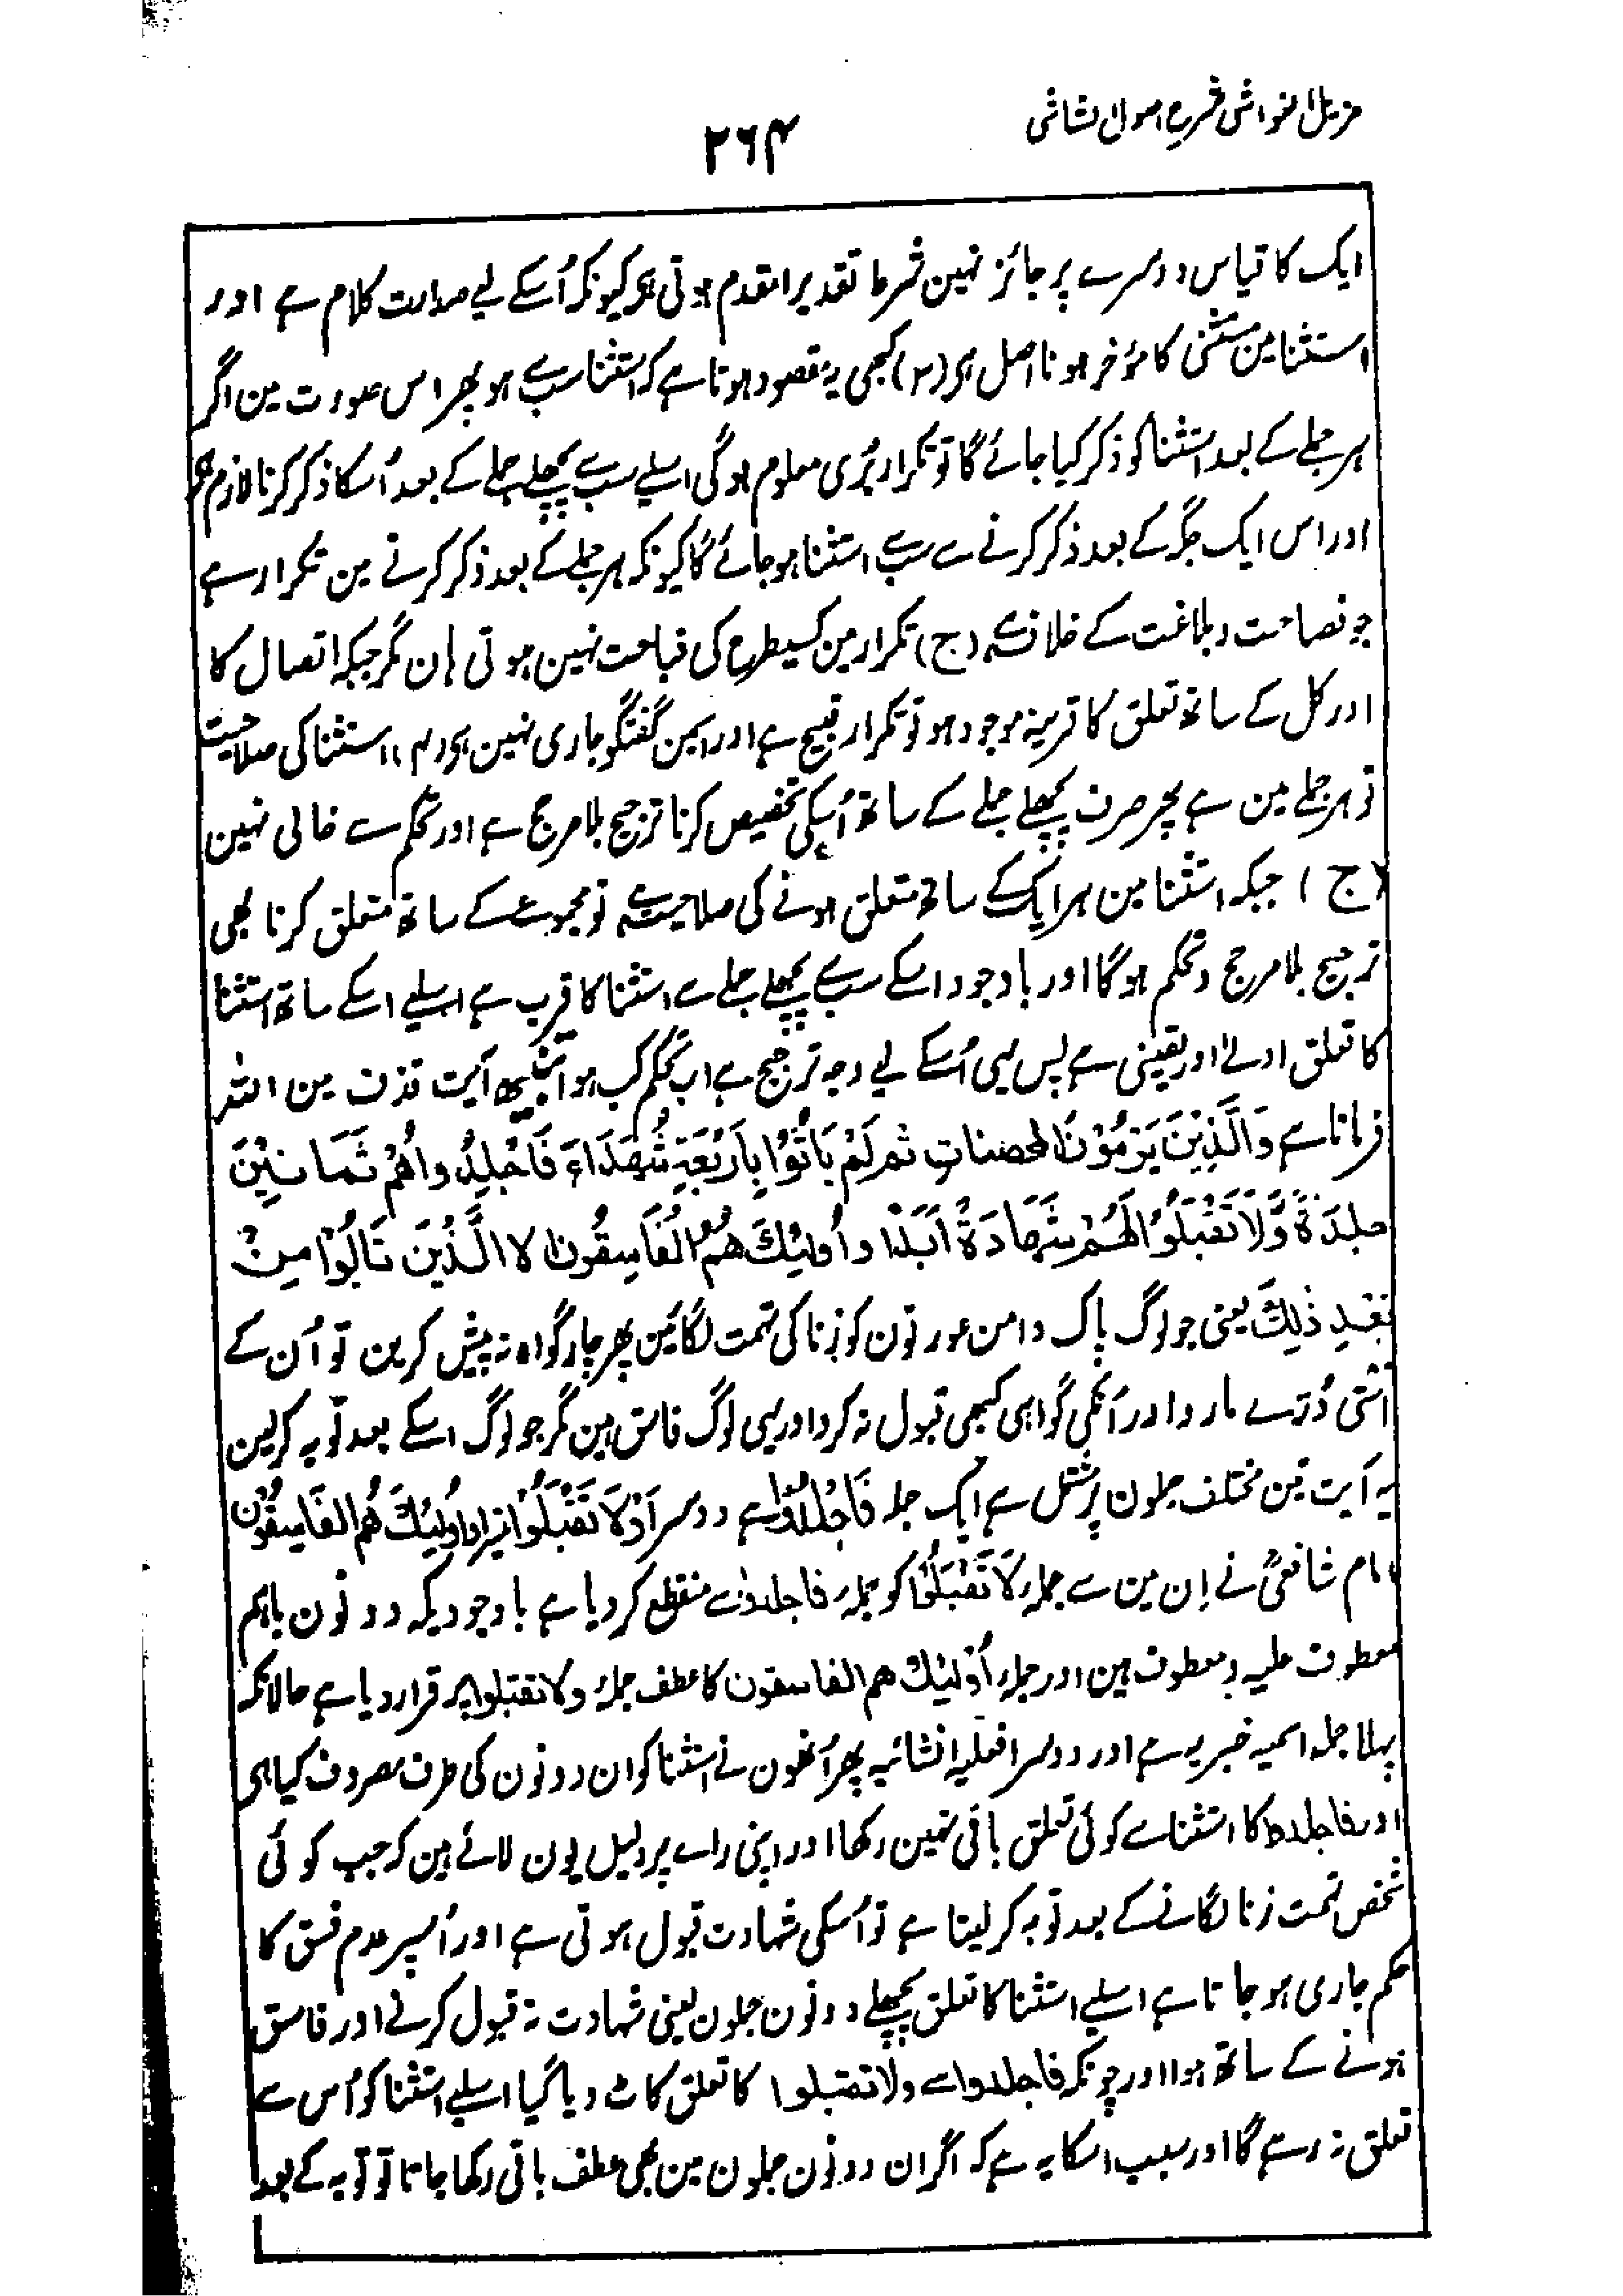 مزیل الغواشی شرح اصول الشاشی
۲۶۴
ایک کا قیاس دوسرے پر جائز نہین شرط تقدیراً متقدم ہوتی ہی کیونکہ اُسکے لیے صدارت کلام ہے اور
استثنا مین مستثنیٰ کا مؤخر ہونا اصل ہی (۳) کبھی یہ مقصود ہوتا ہے کہ استثنا سب سے ہو پھر اس صورت مین اگر
ہر جملے کے بعد استثنا کو ذکر کیا جائے گا تو تکرار بُری معلوم ہوگی اسلیے سب سے پچھلے جملے کے بعد اُسکا ذکر کرنا لازم ہے
اور اس ایک جگہ کے بعد ذکر کرنے سے سب سے استثنا ہوجائے گا کیونکہ ہر جملے کے بعد ذکر کرنے مین تکرار ہے
جو فصاحت و بلاغت کے خلاف ہے (ج) تکرار مین کسیطرح کی قباحت نہین ہوتی ہان مگر جبکہ اتصال کا
اور کل کے ساتھ تعلق کا قرینہ موجود ہو تو تکرار قبیح ہے اور اسمین گفتگو جاری نہین ہی (۴) استثنا کی صلاحیت
تو ہر جملے مین ہے پھر صرف پچھلے جملے کے ساتھ اُسکی تخصیص کرنا ترجیح بلا مرجح ہے اور تحکم سے خالی نہین
(ج) جبکہ استثنا مین ہر ایک کے ساتھ متعلق ہونے کی صلاحیت ہے تو مجموعے کے ساتھ متعلق کرنا بھی
ترجیح بلا مرجح و تحکم ہوگا اور باوجود اسکے سب سے پچھلے جملے سے استثنا کا قرب ہے اسلیے اسکے ساتھ استثنا
کا تعلق اولے اور یقینی ہے پس یہی اُسکے لیے وجہ ترجیح ہے اب تحکم کب ہوا آیت قذف مین اللہ
فرماتا ہے وَالَّذِيْنَ يَرْمُوْنَ المحصنات ثم لَمْ يَأتُوْا بِاَرْبَعَةِ شُهَدَاءَ فَاجْلِدُواهُمْ ثَمَانِيْنَ
جلْدَةً وَّلَا تَقْبَلُوْا لَهُمْ شَهَادَةً اَبَدًا وأُولٰئِكَ هُمُ الْفَاسِقُونَ الا الَّذِيْنَ تَابُوْا مِنْ
بَعْدِ ذٰلِكَ یعنی جو لوگ پاک دامن عورتون کو زنا کی تہمت لگائین پھر چار گواہ نہ پیش کرین تو اُن کے
اسّی دُرّے مارو اور اُنکی گواہی کبھی قبول نہ کرو اور یہی لوگ فاسق ہین مگر جو لوگ اسکے بعد توبہ کرلین
یہ آیت تین مختلف جملون پر مشتمل ہے ایک جملہ فَاجْلِدُوْا ہے دوسرا وَلَا تَقْبَلُوْا تیسرا وَاُولٰئِكَ هُمُ الفَاسِقُوْن
امام شافعیؒ نے اِن مین سے جملۂ لَا تَقْبَلُوْا کو جملۂ فاجلدوا سے منقطع کردیا ہے باوجودیکہ دونون باہم
معطوف علیہ و معطوف ہین اور جملۂ اُولٰئِكَ هم الفاسقون کا عطف جملۂ ولا تقبلوا پر قرار دیا ہے حالانکہ
پہلا جملہ اسمیہ خبریہ ہے اور دوسرا فعلیہ انشائیہ پھر اُنھون نے استثنا کو ان دونون کی طرف مصروف کیا ہی
اور فاجلدوا کا استثنا سے کوئی تعلق باقی نہین رکھا اور اپنی رائے پر دلیل یون لائے ہین کہ جب کوئی
شخص تہمت زنا لگانے کے بعد توبہ کرلیتا ہے تو اُسکی شہادت قبول ہوتی ہے اور اُسپر عدم فسق کا
حکم جاری ہوجاتا ہے اسلیے استثنا کا تعلق پچھلے دونون جملون یعنی شہادت نہ قبول کرنے اور فاسق
ہونے کے ساتھ ہوا اور چونکہ فاجلدوا سے ولا تقبلوا کا تعلق کاٹ دیا گیا اسلیے استثنا کو اُس سے
تعلق نہ رہے گا اور سبب اسکا یہ ہے کہ اگر ان دونون جملون مین بھی عطف باقی رکھا جاتا تو توبہ کے بعد